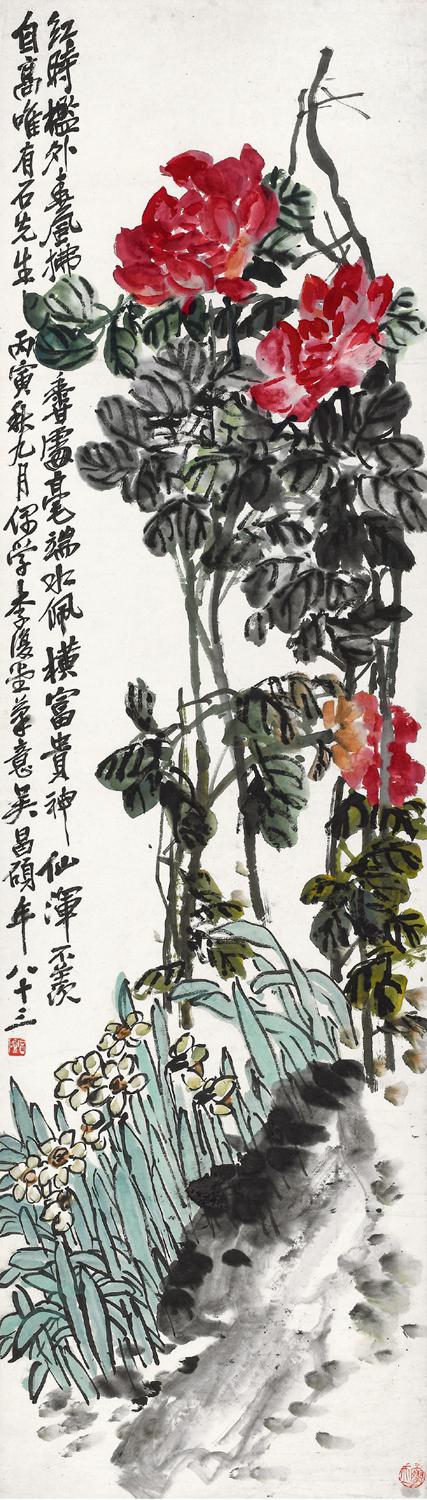 紅時檻外春風拂香處毫端水佩橫富貴神仙渾不羨
自高唯有石先生丙寅秋九月偶學李復堂筆意吳昌碩年八十三